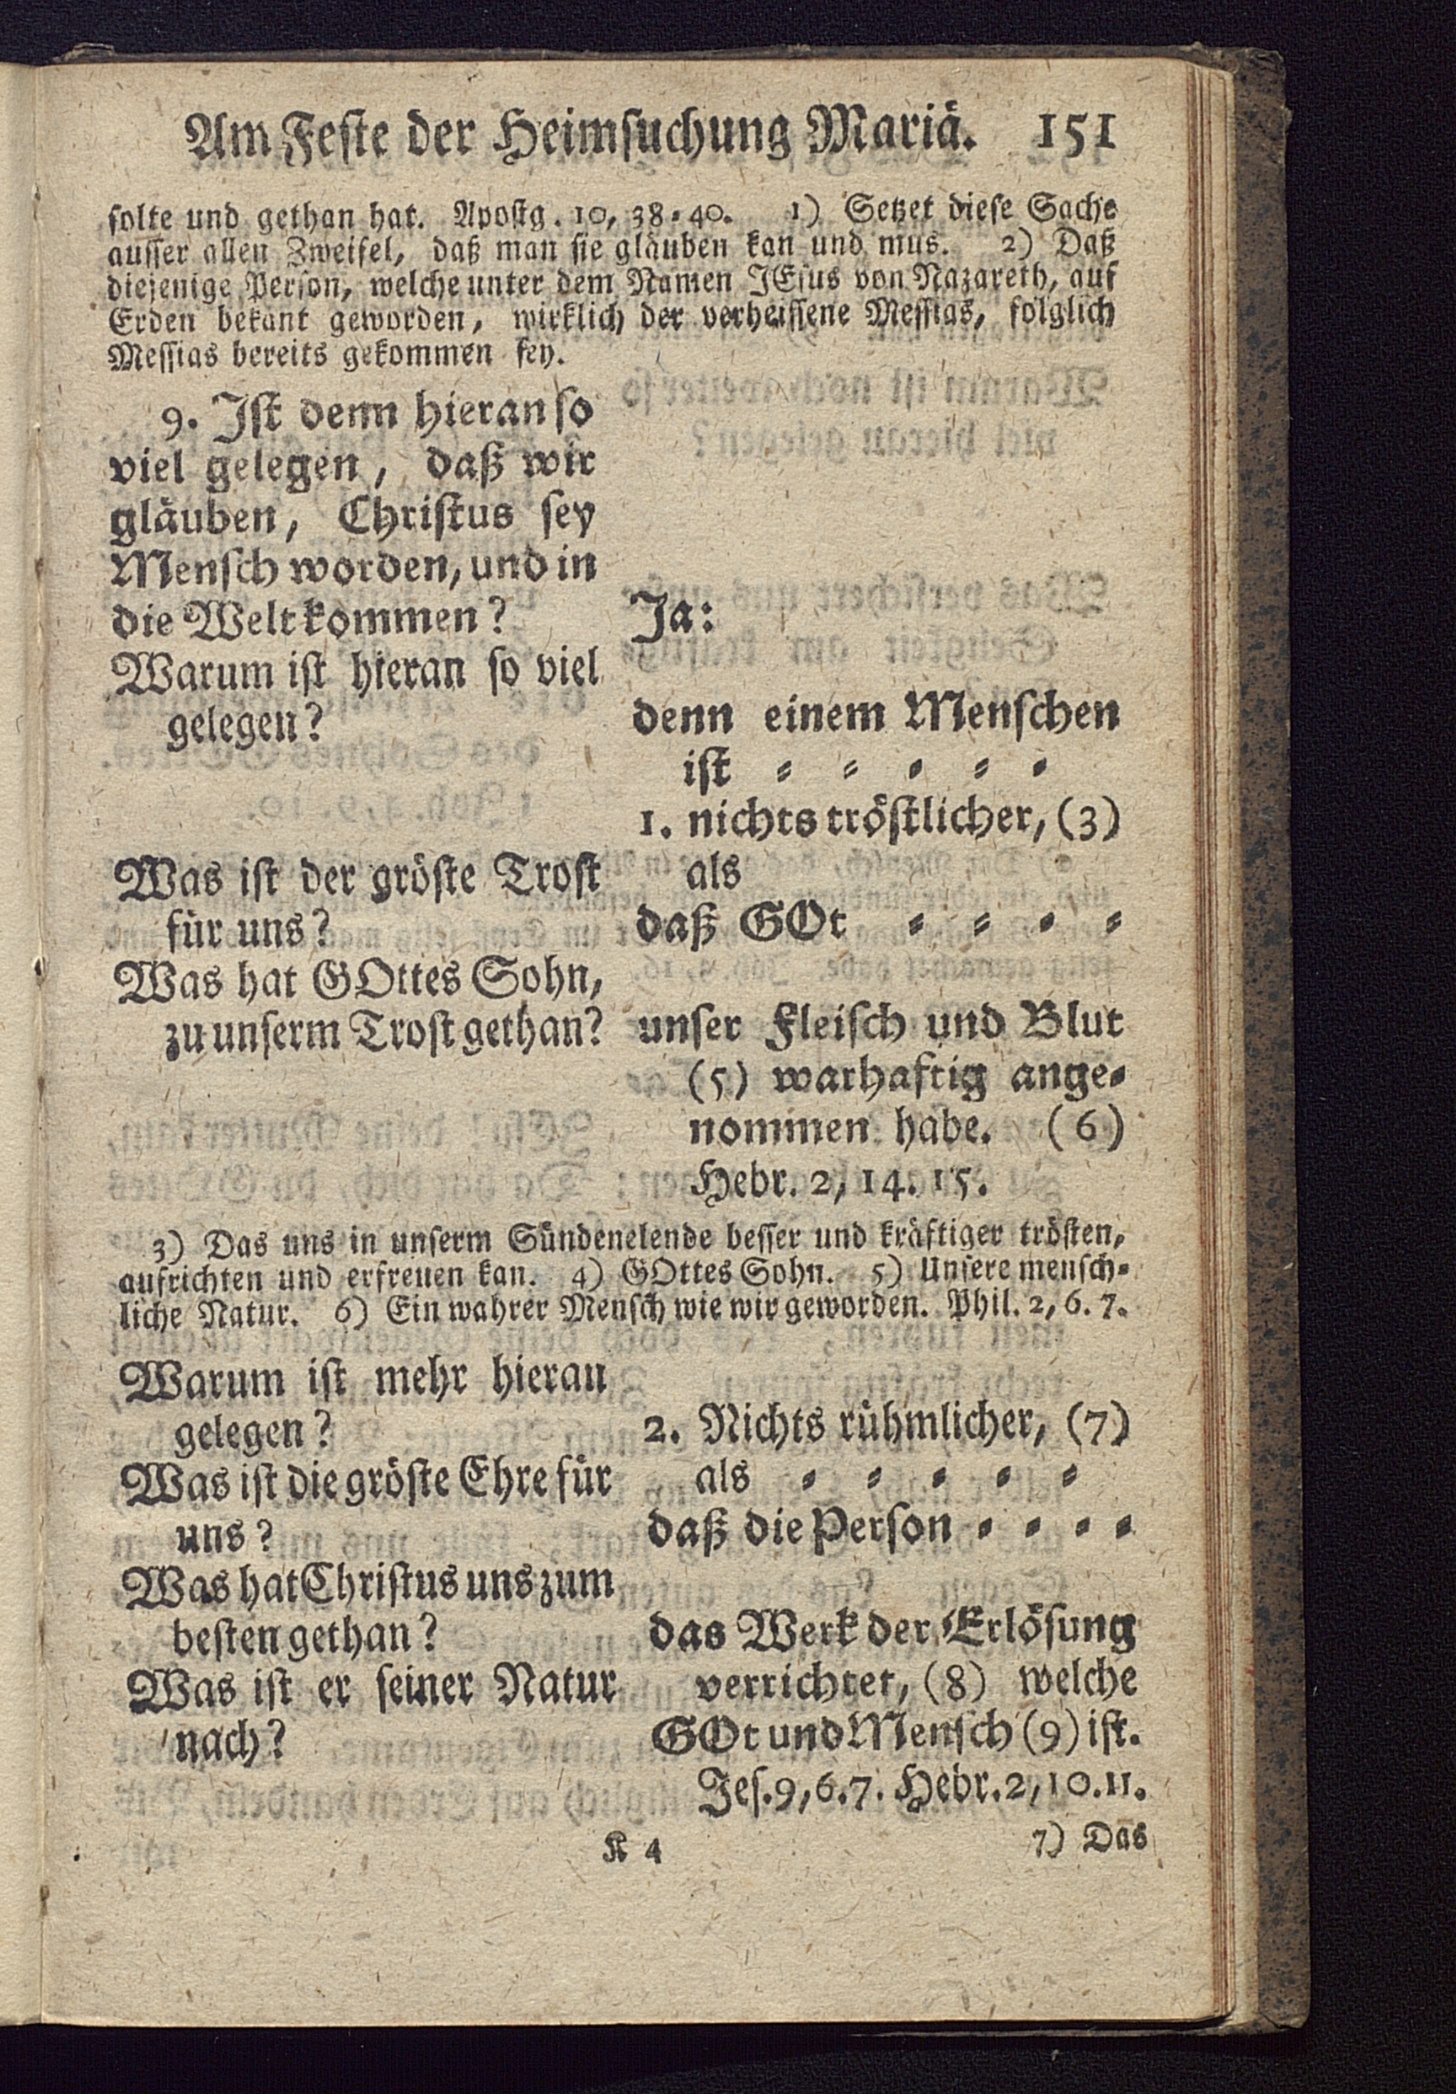 Am Feste der Heimsuchung Mariä. 151
solte und gethan hat. Apostg. 10, 38-40. 1) Setzet diese Sache
ausser allen Zweifel, daß man sie gläuben kan und mus. 2) Daß
diejenige Person, welche unter dem Namen JEsus von Nazareth, auf
Erden bekant geworden, wirklich der verheissene Messias, folglich
Messias bereits gekommen sey.
9. Ist denn hieran so
viel gelegen, daß wir
gläuben, Christus sey
Mensch worden, und in
die Welt kommen?
Ja:
Warum ist hieran so viel
gelegen?
denn einem Menschen
ist - - - - -
1. nichts tröstlicher, (3)
als
Was ist der gröste Trost
für uns?
daß GOt - - - -
Was hat GOttes Sohn,
zu unserm Trost gethan?
unser Fleisch und Blut
(5) warhaftig ange-
nommen habe. (6)
Hebr. 2, 14. 15.
3) Das uns in unserm Sündenelende besser und kräftiger trösten,
aufrichten und erfreuen kan. 4) GOttes Sohn. 5) Unsere mensch-
liche Natur. 6) Ein wahrer Mensch wie wir geworden. Phil. 2, 6. 7.
Warum ist mehr hieran
gelegen?
2. Nichts rühmlicher, (7)
als - - - - -
Was ist die gröste Ehre für
uns?
daß die Person - - - -
Was hat Christus uns zum
besten gethan?
das Werk der Erlösung
verrichtet, (8) welche
Was ist er seiner Natur
nach?
GOt und Mensch (9) ist.
Jes. 9, 6. 7. Hebr. 2, 10. 11.
K 4
7) Das